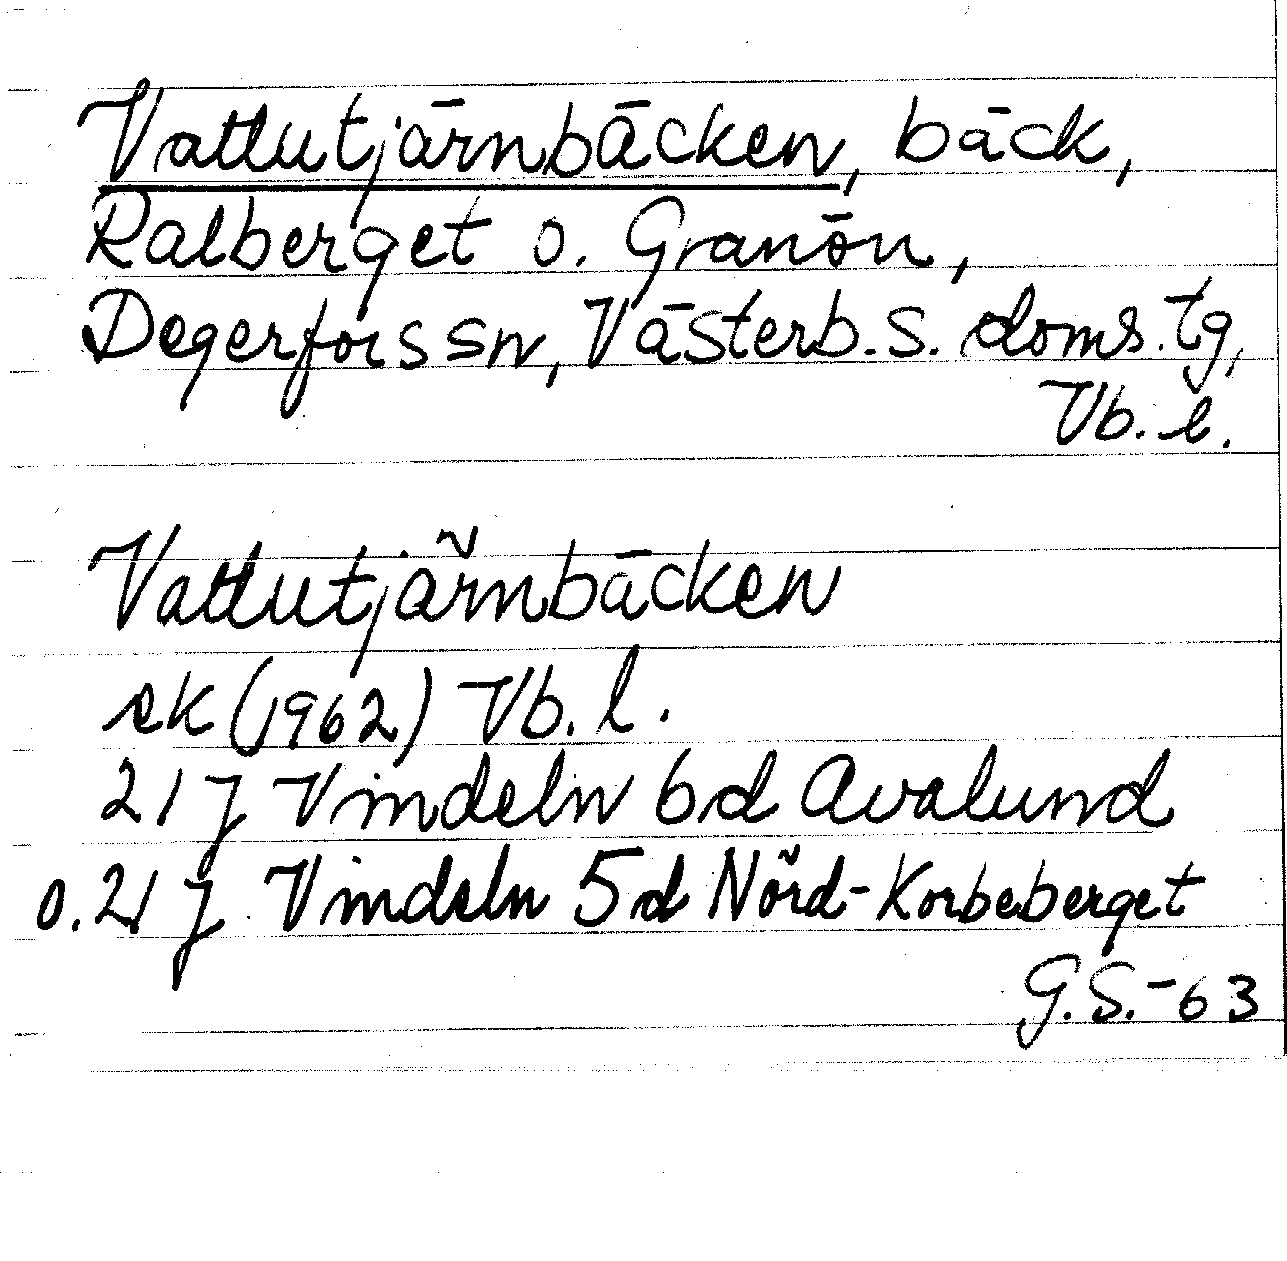 Vattutjärnbäcken, bäck,
Ralberget o. Granön,
Degerfors sn, Västerb. s. doms. tg,
Vb. l.
Vattutjärnbäcken
ek (1962) Vb. l.
21 J Vindeln 6d Avalund
o. 21 J Vindeln 5d Nörd-Korbeberget
G.S.-63